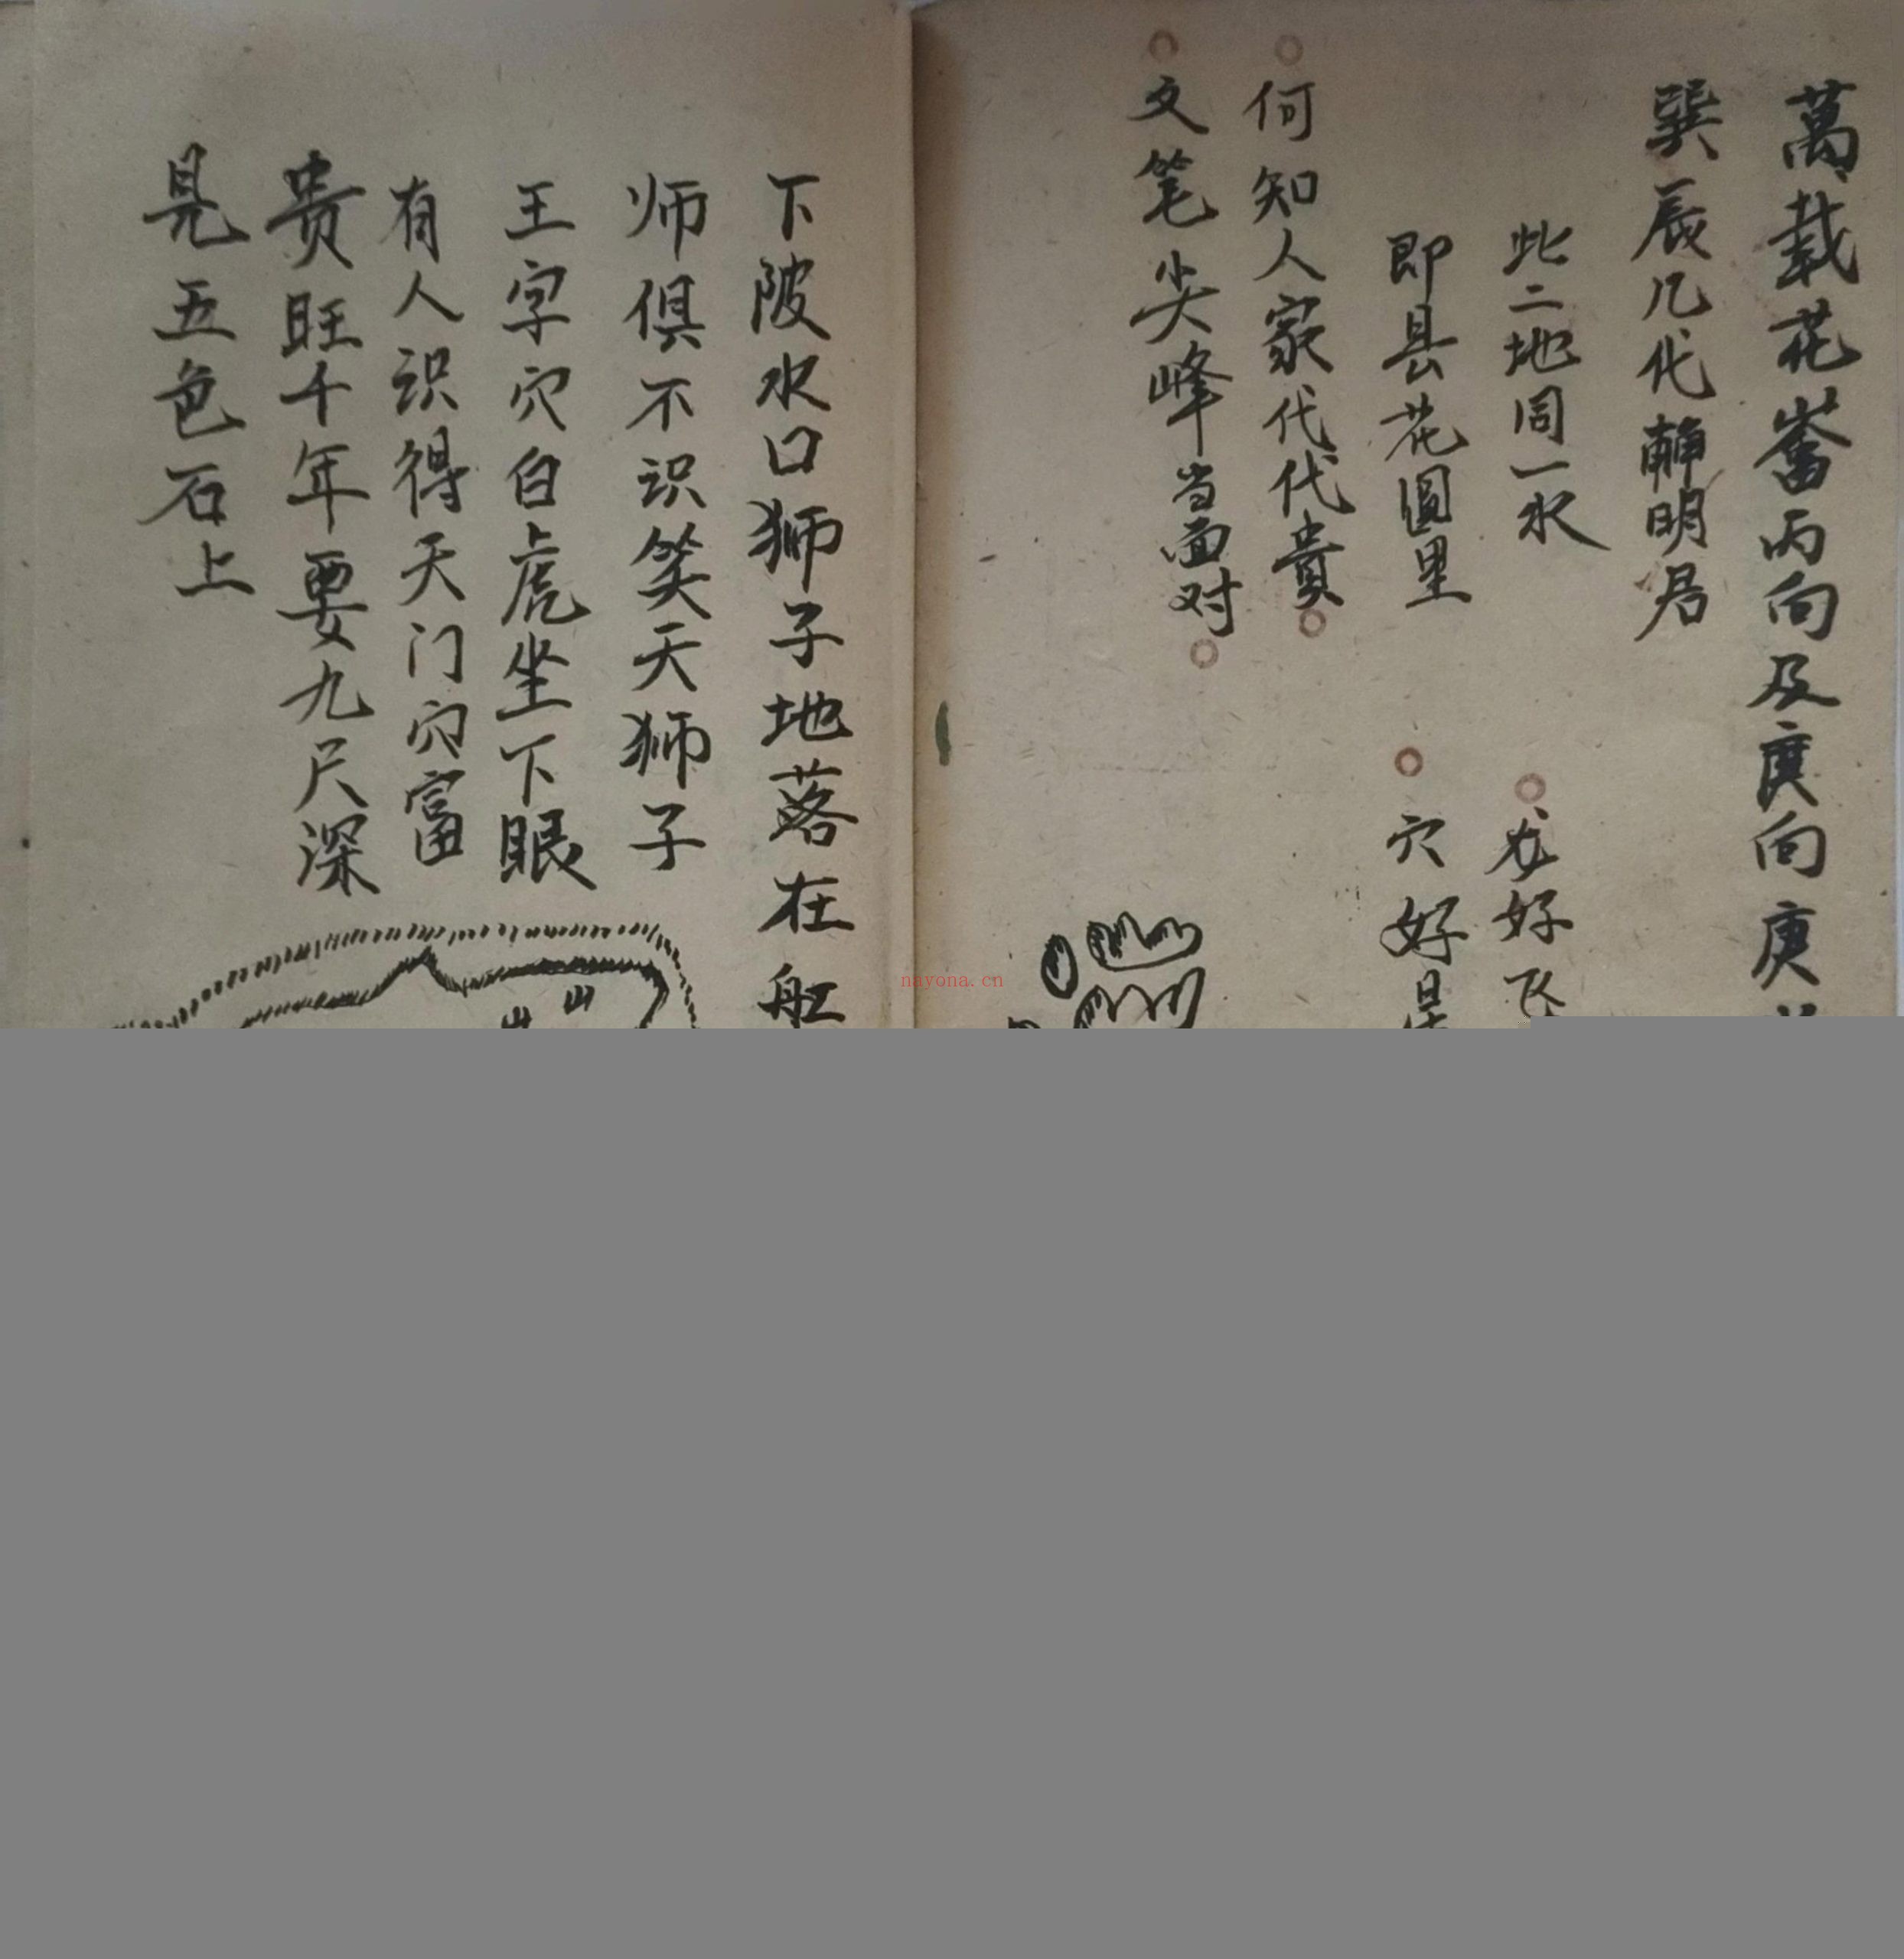 萬载花畬丙向及庚向庚
巽辰几代輔明君
此二地同一水
即县花圆里
龙好飞
穴好
何知人家代代貴
文笔尖峰当面对
下陂水口狮子地落在船
师俱不识笑天狮子
王字穴白虎坐下眼
有人识得天门穴富
贵旺千年要九尺深
見五色石上
山
山
nayona.cn